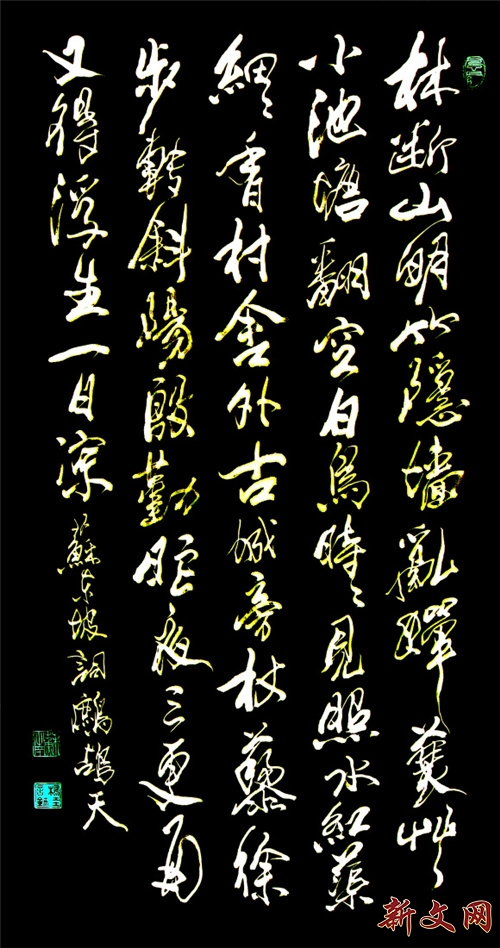 林断山明竹隱墻亂蟬衰艸
小池塘翻空白鳥時〻見照水紅蕖
細〻香村舍外古城旁杖藜徐
步轉斜陽殷勤昨夜三更雨
又得浮生一日凉 蘇東坡詞鷓鴣天
新文网